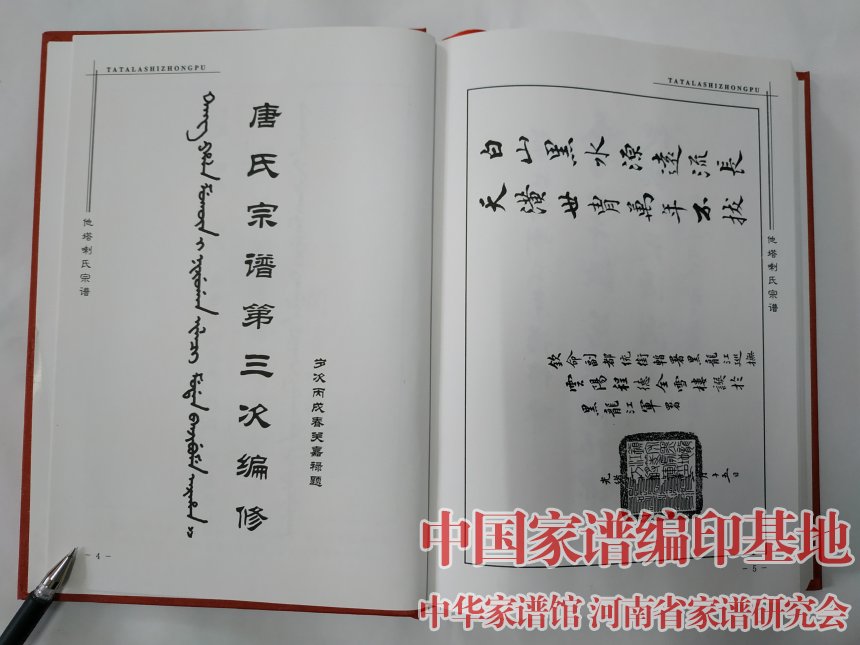 TATALASHIZHONGPU
他塔喇氏宗谱
唐氏宗谱第三次编修
岁次丙戌春吴嘉禄题
- 4 -
TATALASHIZHONGPU
他塔喇氏宗谱
白山黑水源遠流長
天潢世胄萬年不拔
欽命副都統銜賴署黑龍江巡撫
雲陽程德全雪樓譔於
黑龍江軍署
光
月十五日
- 5 -
中国家谱编印基地
中华家谱馆 河南省家谱研究会